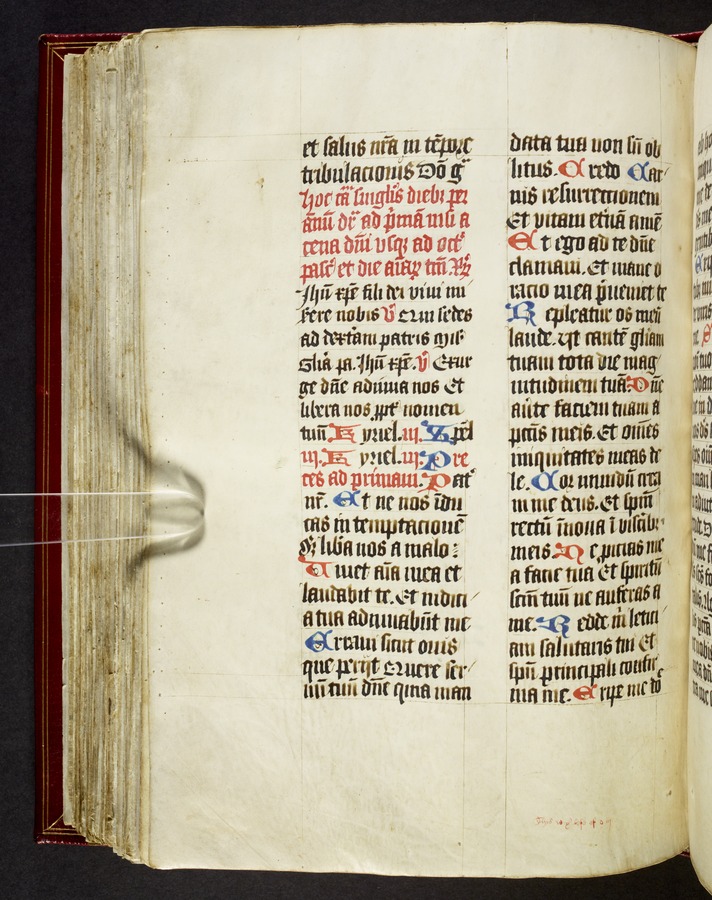 et salus nr̄a in tēpore
tribulacionis Dō g
hoc tā singlis diebꝫ per
ānū dr̄ ad p̄mā nisi a
cena dn̄i vsqꝫ ad oct
pasc et die aīaꝝ tm̄. ꝶ
Jhū xp̄e fili dei viui mi
serere nobis v̄ Qui sedes
ad dexterā patris mis
Glīa pa. Jhū xp̄e. v̄ Exur
ge dn̄e adiuua nos Et
libera nos ꝓpt nomen
tuū Kyriel. iii. Xpel
iii. Kyriel. iii. Pre
ces ad primam. Pat
nr̄. Et ne nos īdu
cas in temptacionē
Sꝫ lib̄a nos a malo :
Uiuet aīa mea et
laudabit te. Et iudici
a tua adiuuabūt me
Erraui sicut ouis
que perijt Quere ser
uū tuū dn̄e quia man
data tua non sū ob
litus. Credo Car
nis resurrectionem
Et vitam et̄nā amē
Et ego ad te dn̄e
clamaui. Et mane o
racio mea p̄ueniet te
Repleatur os meū
laude. vt cantē gliam
tuam tota die mag
nitudinem tuā Dn̄e
auerte faciem tuam a
pctīs meis. Et omēs
iniquitates meas de
le. Cor mundū crea
in me deus. Et spm̄
rectū īnoua ī visceribꝫ
meis. Ne ꝓicias me
a facie tua Et spiritū
scm̄ tuū ne auferas a
me. Redde m̄ letici
am salutaris tui Et
spū principali confir
ma me. Eripe me dō